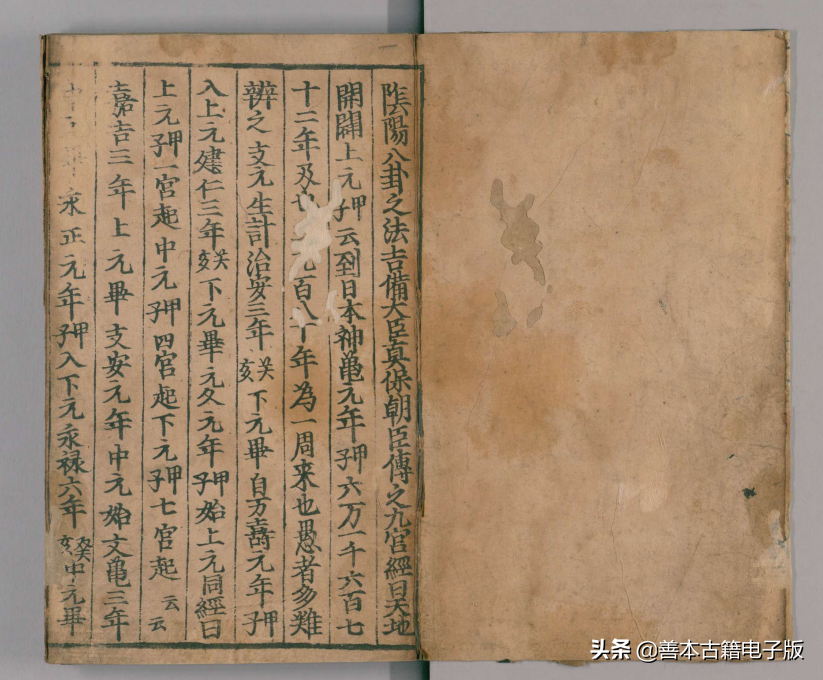 陰陽八卦之法吉備大臣真保朝臣傳之九宮經曰天地
開闢上元甲子云到日本神亀元年甲子六万一千六百七
十二年及百八十年為一周来也愚者多難
辨之支元生計治安三年癸亥下元畢自万壽元年甲子
入上元建仁三年癸亥下元畢元久元年甲子始上元同經曰
上元甲子一宮起中元甲子四宮起下元甲子七宮起云云
嘉吉三年上元畢支安元年中元始文亀三年
畢永正元年甲子入下元永禄六年癸亥中元畢
头条 @善本古籍电子版